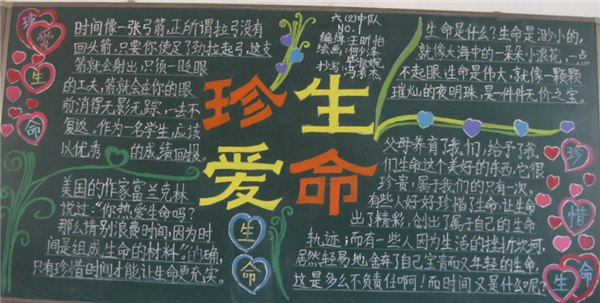 珍爱
生命
时间像一张弓箭,正所谓拉弓没有
回头箭,只要你使足了劲拉起弓,这支
箭就会射出,只须一眨眼
的工夫,箭就会在你的眼
前消得无影无踪,一去不
复返。作为一名学生,应该
以优秀的成绩回报。
美国的作家富兰克林
说过:“你热爱生命吗?
那么请别浪费时间,因为时
间是组成生命的材料。”的确,
只有珍惜时间才能让生命更充实。
生命
珍 生
爱 命
六(2)中队
NO.1
编辑:
绘画:
抄写:
生命是什么?生命是渺小的,
就像大海中的一朵朵小浪花,一点
不起眼.生命是伟大,就像一颗颗
璀灿的夜明珠,是一件件无价之宝。
父母养育了我们,给予了我
们生命这个美好的东西,它很
珍贵,属于我们的只有一次。
有些人好好珍惜了生命,让生命
出了精彩,创出了属于自己的生命
轨迹;而有一些人因为生活的挫折坎坷,
居然轻易地舍弃了自己宝贵而又年轻的生命,
这是多么不负责任啊!而时间又是什么呢?
珍惜
生命